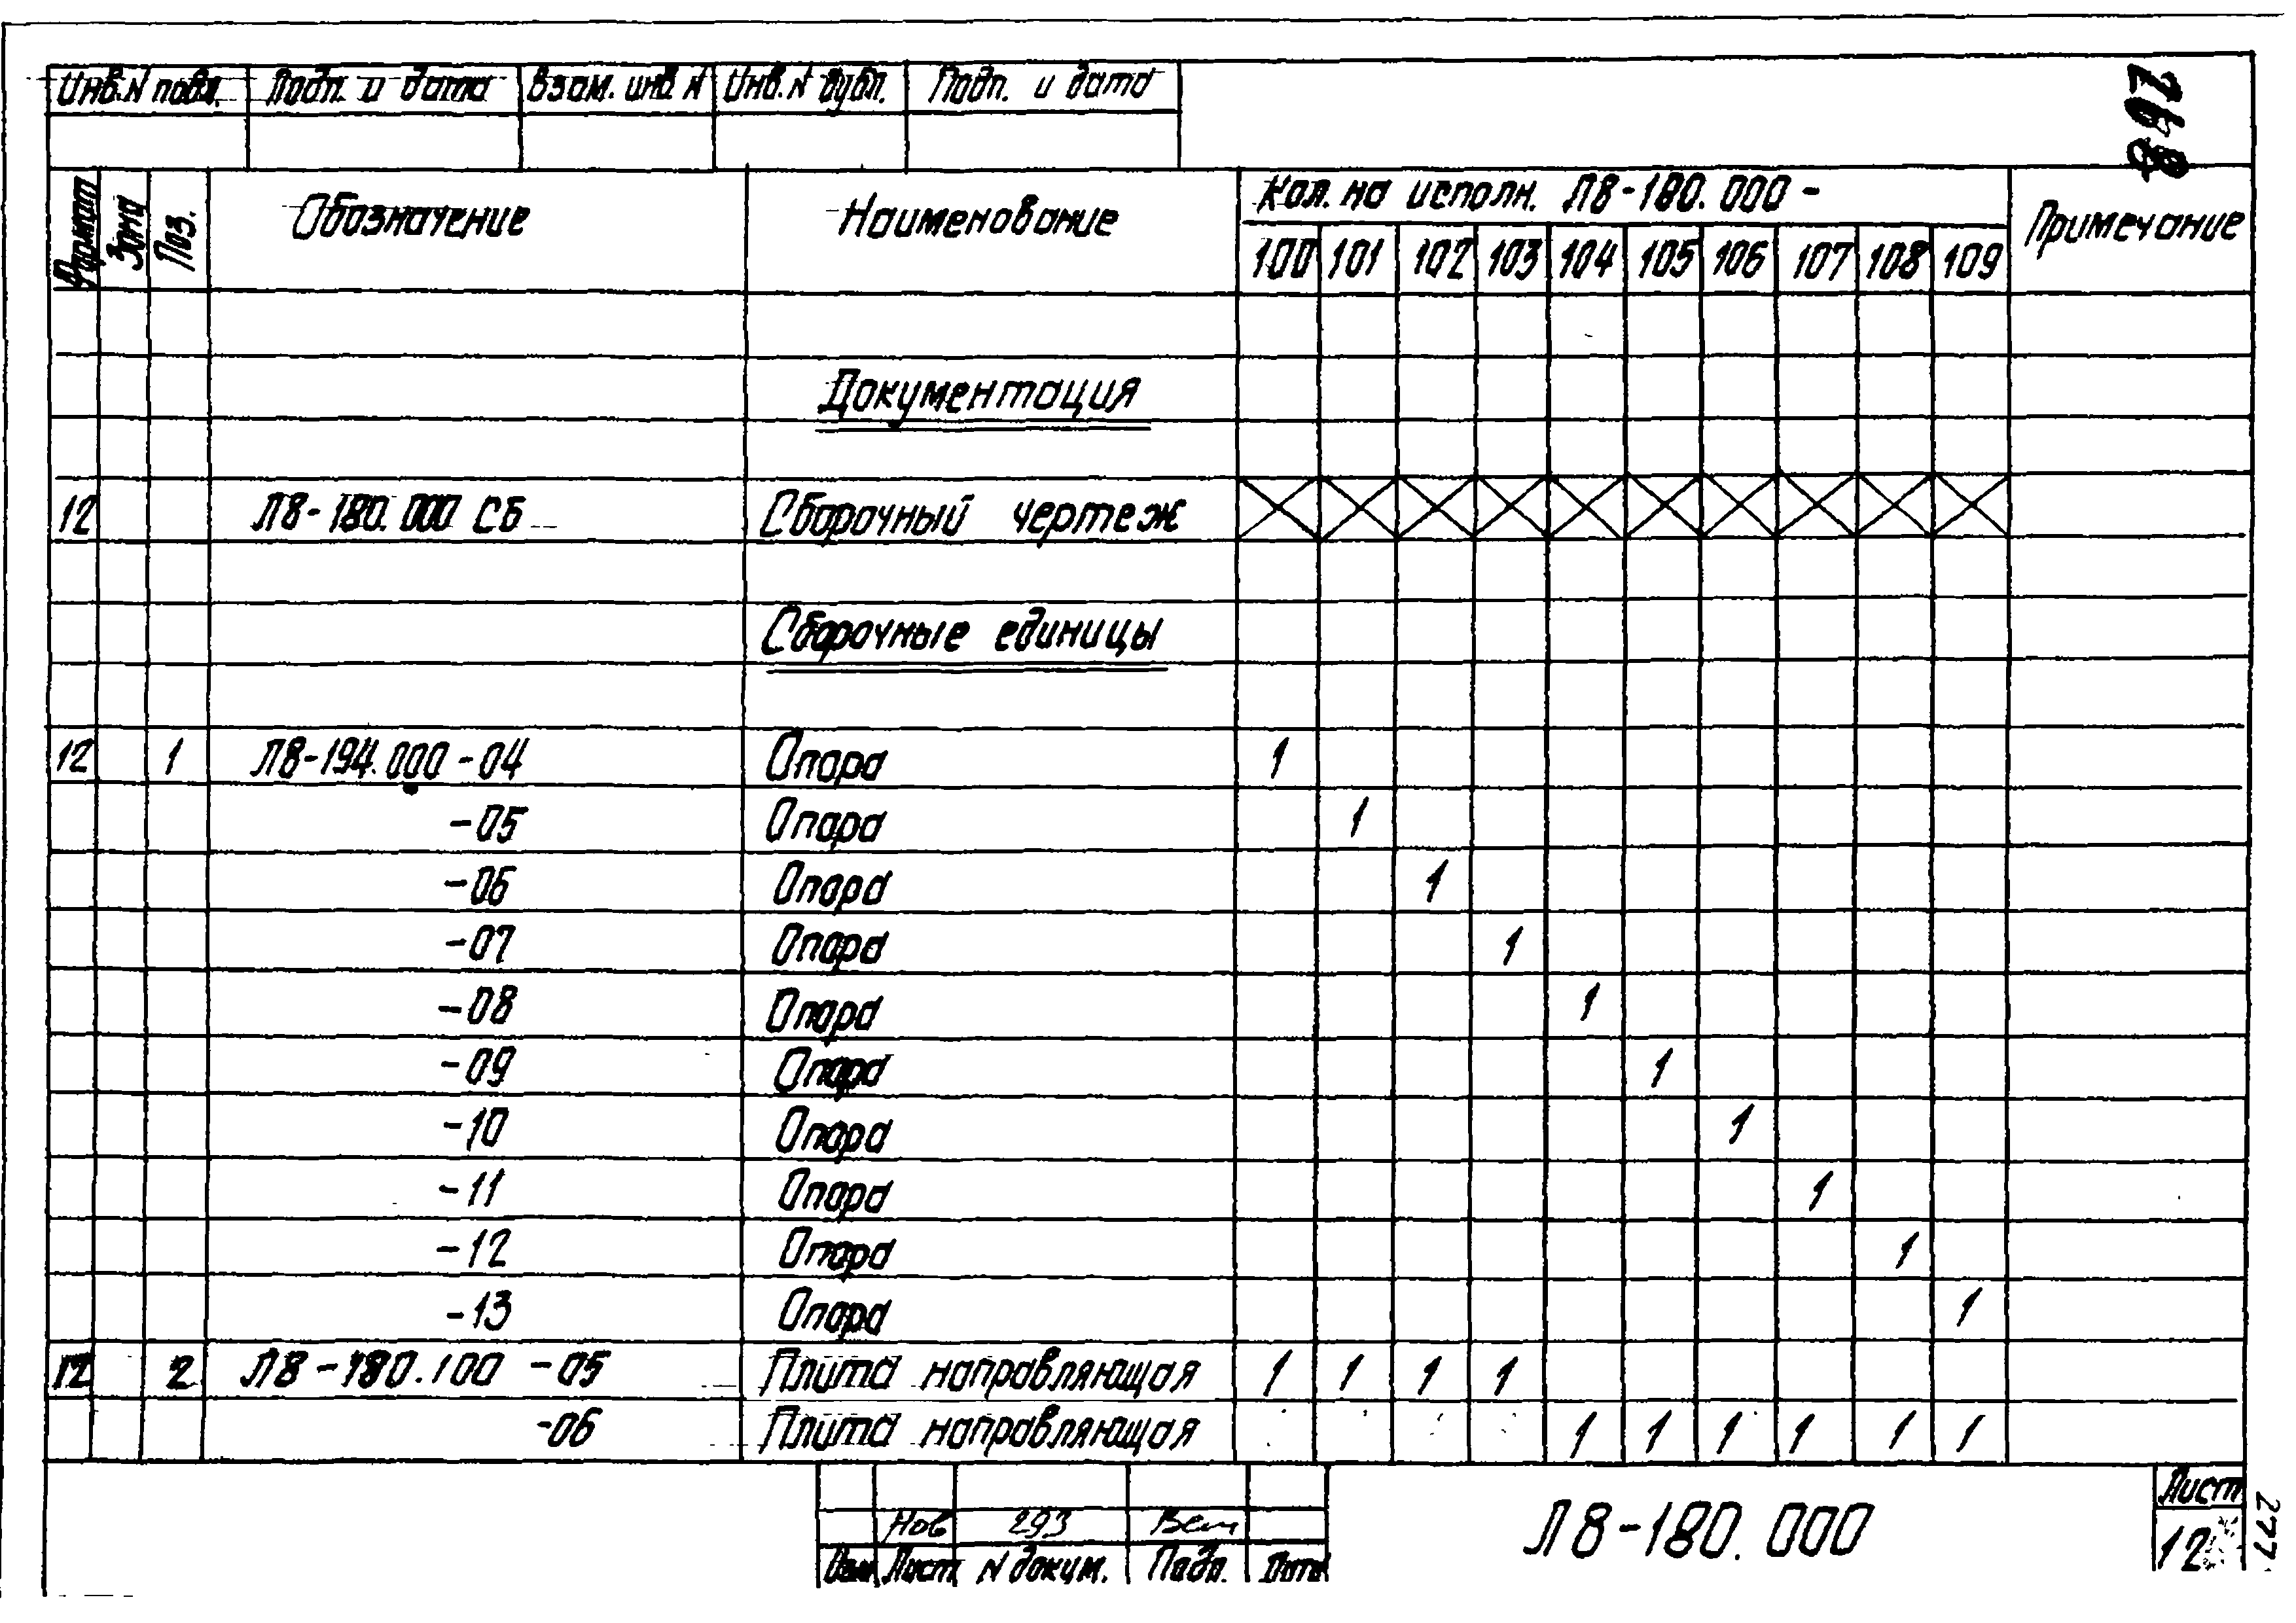 Инв.N подл. Подп. и дата Взам. инв N Инв.N дубл. Подп. и дата
268
Формат Зона Поз. Обозначение Наименование Кол. на исполн. Л8-180.000- Примечание
100 101 102 103 104 105 106 107 108 109
Документация
12 Л8-180.000 СБ Сборочный чертеж
Сборочные единицы
12 1 Л8-194.000-04 Опора 1
-05 Опора 1
-06 Опора 1
-07 Опора 1
-08 Опора 1
-09 Опора 1
-10 Опора 1
-11 Опора 1
-12 Опора 1
-13 Опора 1
12 2 Л8-180.100 -05 Плита направляющая 1 1 1 1
-06 Плита направляющая 1 1 1 1 1 1
Нов 293
Изм Лист N докум. Подп. Дата
Л8-180.000
Лист
12
277